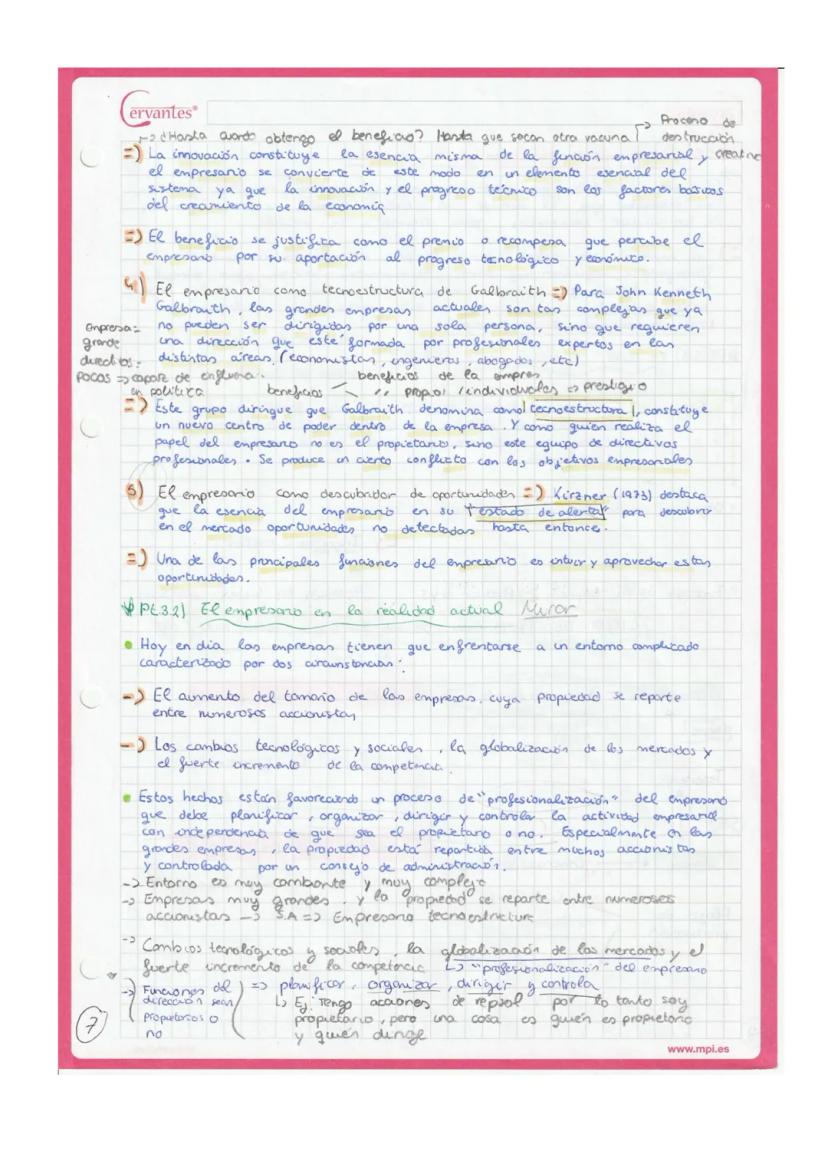 Cervantes®
Proceno de
-> ¿Hasta cuando obtengo el beneficio? Hasta que sacan otra vacuna -> destrucción
=) La innovación constituye la esencia misma de la función empresarial y creativa
el empresario se convierte de este modo en un elemento esencial del
sistema ya que la innovación y el progreso técnico son los factores básicos
del crecimiento de la economía
=) El beneficio se justifica como el premio o recompensa que percibe el
empresario por su aportación al progreso tecnológico y económico.
4) El empresario como tecnoestructura de Galbraith =) Para John Kenneth
Galbraith, las grandes empresas actuales son tas complejas que ya
no pueden ser dirigidas por una sola persona, sino que requieren
una dirección que esté formada por profesionales expertos en las
distintas aíreas. (economistas, ingenieros, abogados, etc)
Empresa =
grande
directivos =
pocos => capaz de influenc.
en política
beneficios de la empres
beneficios " propios / individuales => prestigio
=) Este grupo dirirgue que Galbraith denomina como tecnoestructura, constituye
un nuevo centro de poder dentro de la empresa. Y como quien realiza el
papel del empresario no es el propietario, sino este equipo de directivos
profesionales. Se produce un cierto conflicto con los objetivos enpresariales
5) El empresario como descubridor de oportunidades =) Kirzner (1973) destaca
que la esencia del empresario en su "estado de alerta" para descubrir
en el mercado oportunidades no detectadas hasta entonce.
=) Una de las principales funciones del enpresario es intuir y aprovechar estas
oportunidades.
Pt 3.2) El empresario en la realidad actual Mirar
• Hoy en día las empresas tienen que enfrentarse a un entorno complicado
caracterizado por dos circunstancias:
-) El aumento del tamaño de las empresas. cuya propiedad se reparte
entre numerosos accionistas
-) Los cambios tecnológicos y sociales, la globalización de los mercados y
el fuerte incremento de la competencia.
• Estos hechos están favoreciendo un proceso de "profesionalización" del empresario
que debe planificar, organizar, dirigir y controlar la actividad empresarial
con independencia de que sea el propietario o no. Especialmente en las
grandes empresas, la propiedad está repartida entre muchos accionistas
y controlada por un consejo de administración.
-> Entorno es muy cambiante y muy complejo
-> Empresas muy grandes. y la propiedad se reparte entre numerosos
accionistas -> S.A => Empresario tecnoestructura
-> Cambios tecnológicos y sociales, la globalización de los mercados y el
fuerte incremento de la competencia -> "profesionalización" del empresario
-> Funciones del => planificar, organizar, dirigir y controla
dirección sean -> Ej: Tengo acciones de repsol por lo tanto soy
propietarios o propietario, pero una cosa es quién es propietario
no y quién dirige
7
www.mpi.es